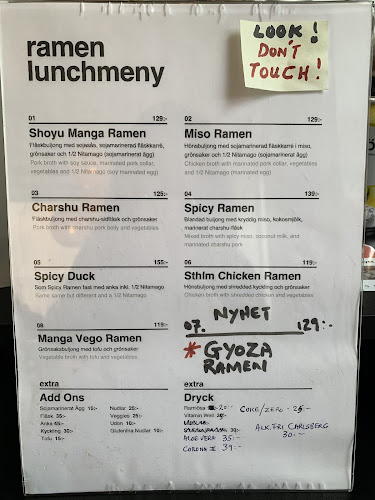 ramen
lunchmeny
LOOK!
DON'T
TOUCH!
01 129:-
Shoyu Manga Ramen
Fläskbuljong med sojasås, sojamarinerad fläskkarré,
grönsaker och 1/2 Nitamago (sojamarinerat ägg)
Pork broth with soy sauce, marinated pork collar,
vegetables and 1/2 Nitamago (soy marinated egg)
02 129:-
Miso Ramen
Hönsbuljong med sojamarinerad fläskkarré i miso,
grönsaker och 1/2 Nitamago (sojamarinerat ägg)
Chicken broth with marinated pork collar, vegetables
and 1/2 Nitamago (marinated egg)
03 125:-
Charshu Ramen
Fläskbuljong med charshu-sidfläsk och grönsaker
Pork broth with charshu pork belly and vegetables
04 139:-
Spicy Ramen
Blandad buljong med kryddig miso, kokosmjölk,
marinerat charshu-fläsk
Mixed broth with spicy miso, coconut milk, and
marinated charshu pork
05 155:-
Spicy Duck
Som Spicy Ramen fast med anka inkl. 1/2 Nitamago
Same same but different and a 1/2 Nitamago
06 119:-
Sthlm Chicken Ramen
Hönsbuljong med shredded kyckling och grönsaker
Chicken broth with shredded chicken and vegetables
08 119:-
Manga Vego Ramen
Grönsaksbuljong med tofu och grönsaker
Vegetable broth with tofu and vegetables
NYHET
07. 129:-
* GYOZA
RAMEN
extra
Add Ons
Sojamarinerat Ägg 15:- Nudlar: 25:-
Fläsk 35:- Veggies 25:-
Anka 45:- Udon 10:-
Kyckling 30:- Glutenfria Nudlar 10:-
Tofu 15:-
extra
Dryck
Ramlösa 20:- COKE/ZERO - 25:-
Vitamin Well 30:-
ALOE VERA 35:- ALK.FRI CARLSBERG
30:-
CORONA 39:-